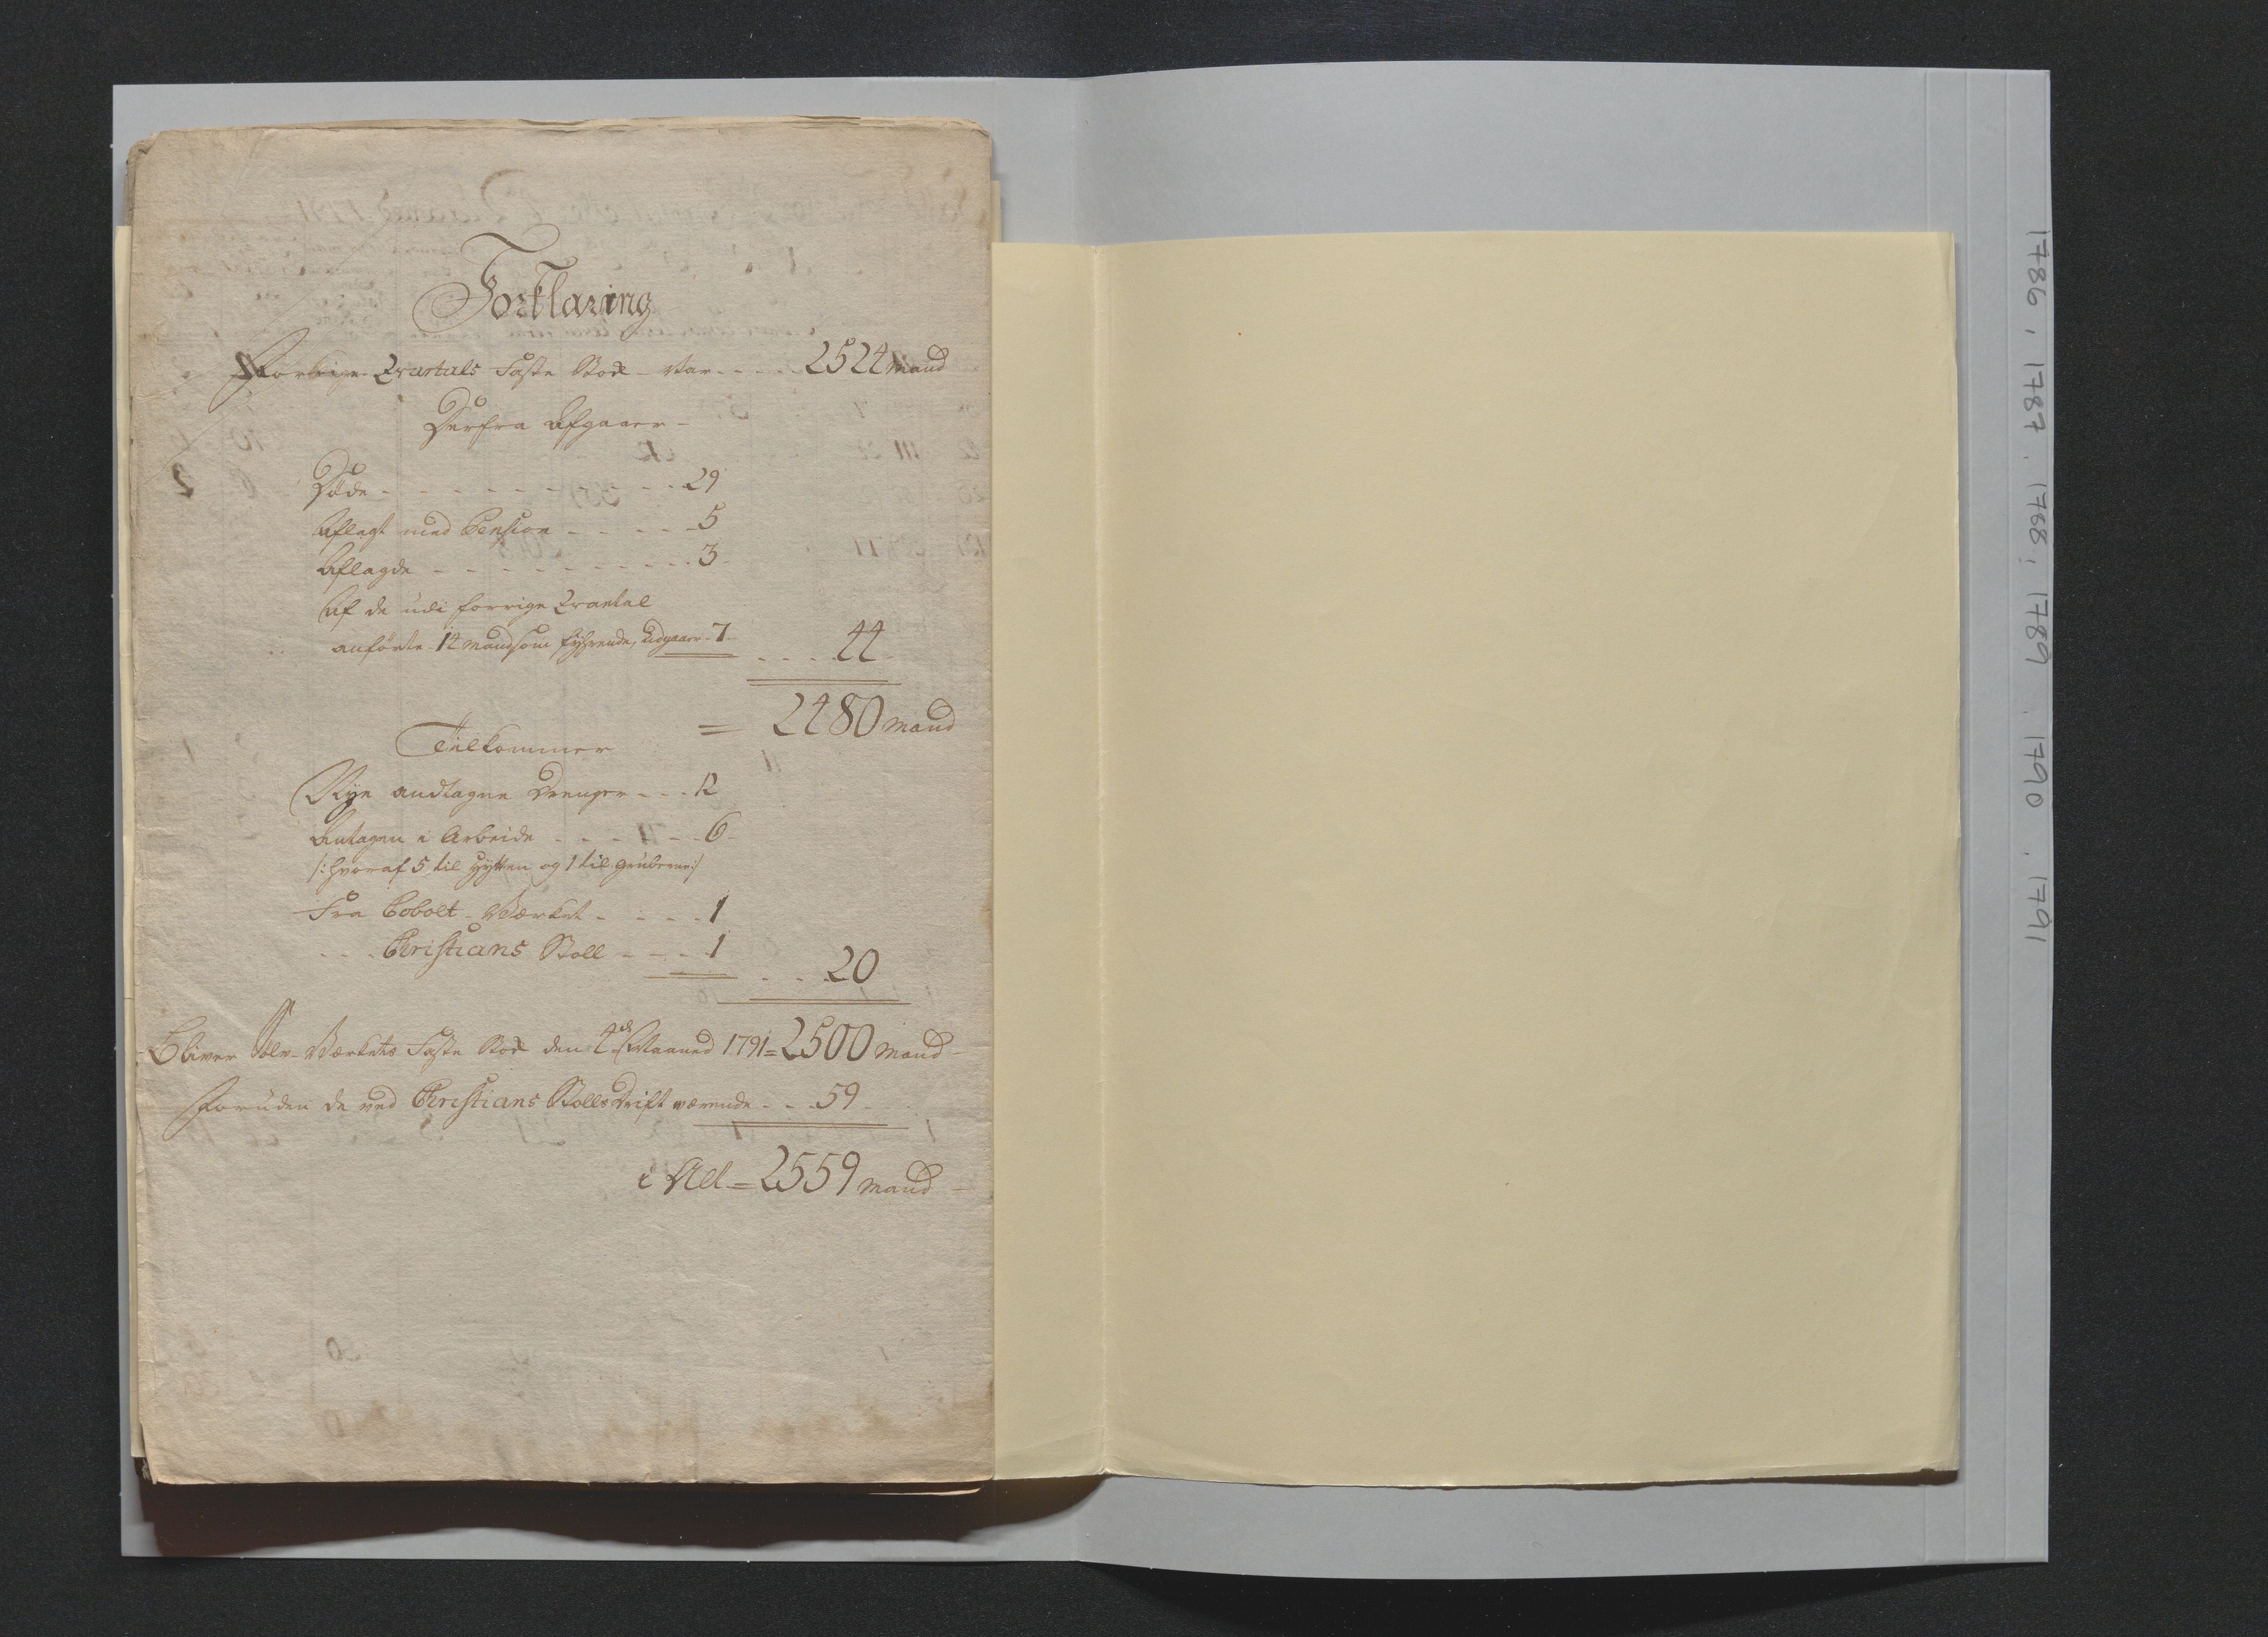 Forklaring
Forrige Qvartals Faste Stok var - - - - 2524 mand
Derfra Afgaaer -
Døde - - - - - - - - - - 29
Aflagt med Pension - - - - - 5
Aflagde - - - - - - - - - - 3
Af de udi forrige Qvartal
anførte 14 mand som fyhrende, udgaaer - 7 - - - - 44
= 2480 mand
Tilkommer
Nye andtagne Drenger - - - 12
Antagen i Arbeide - - - - - 6 -
/: hvoraf 5 til Hytten og 1 til Gruberne :/
Fra Cobolt-Værket - - - - - 1
- - - Christians Stoll - - - - 1 - - - 20
Bliver Sølv-Værkets Faste Stok den 4de Maaned 1791 = 2500 mand -
Foruden de ved Christians Stolls Drift værende - - - 59 -
i Alt = 2559 mand -
1786, 1787. 1788, 1789. 1790. 1791